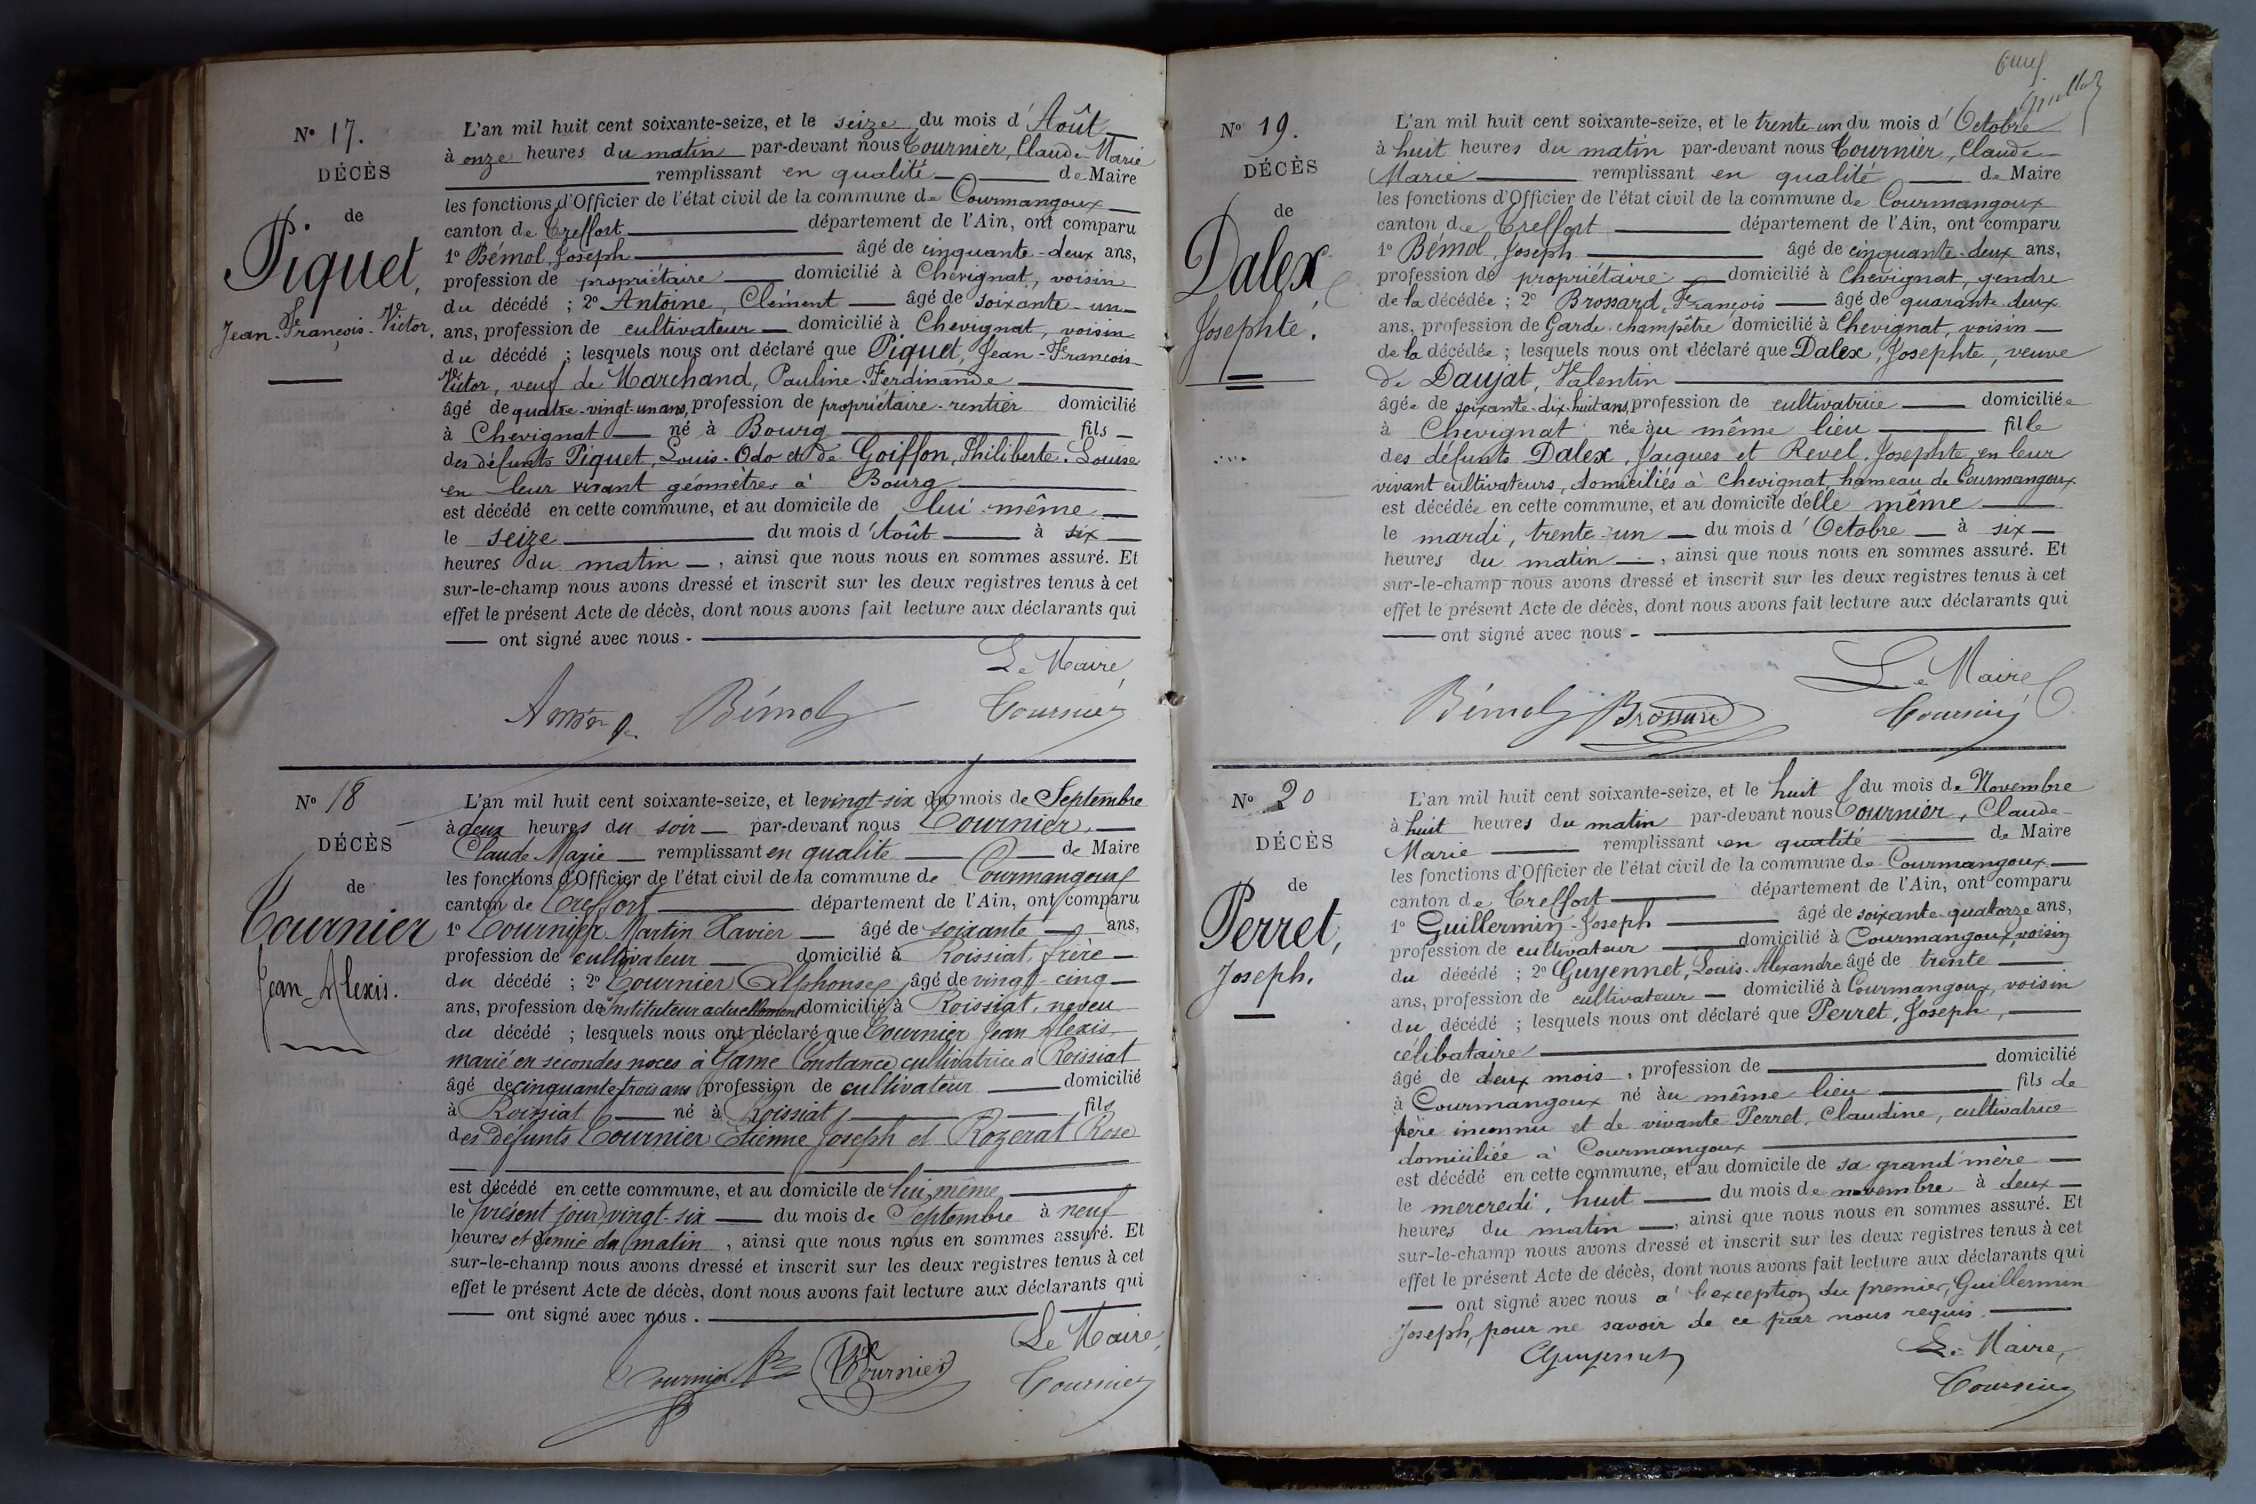 N° 17.
DÉCÈS
de
Piquet,
Jean-François-Victor.
L'an mil huit cent soixante-seize, et le seize du mois d'Août
à onze heures du matin par-devant nous Tournier, Claude-Marie
remplissant en qualité de Maire
les fonctions d'Officier de l'état civil de la commune de Courmangoux
canton de Treffort département de l'Ain, ont comparu
1° Bémol, Joseph âgé de cinquante-deux ans,
profession de propriétaire domicilié à Chevignat, voisin
du décédé ; 2° Antoine, Clément âgé de soixante-un
ans, profession de cultivateur domicilié à Chevignat, voisin
du décédé ; lesquels nous ont déclaré que Piquet, Jean-François-
Victor, veuf de Marchand, Pauline-Ferdinande
âgé de quatre-vingt-un ans, profession de propriétaire-rentier domicilié
à Chevignat né à Bourg fils
des défunts Piquet, Louis-Odo et de Goiffon, Philiberte-Louise
en leur vivant géomètres à Bourg
est décédé en cette commune, et au domicile de lui-même
le seize du mois d'Août à six
heures du matin, ainsi que nous nous en sommes assuré. Et
sur-le-champ nous avons dressé et inscrit sur les deux registres tenus à cet
effet le présent Acte de décès, dont nous avons fait lecture aux déclarants qui
ont signé avec nous.
Le Maire,
Bémol Tournier
N° 18
DÉCÈS
de
Tournier
Jean Alexis.
L'an mil huit cent soixante-seize, et le vingt-six du mois de Septembre
à deux heures du soir par-devant nous Tournier,
Claude Marie remplissant en qualité de Maire
les fonctions d'Officier de l'état civil de la commune de Courmangoux
canton de Treffort département de l'Ain, ont comparu
1° Tournier Martin Xavier âgé de soixante ans,
profession de cultivateur domicilié à Roissiat, frère
du décédé ; 2° Tournier Alphonse âgé de vingt-cinq
ans, profession de Instituteur actuellement domicilié à Roissiat, neveu
du décédé ; lesquels nous ont déclaré que Tournier Jean Alexis
marié en secondes noces à Game Constance cultivatrice à Roissiat
âgé de cinquante trois ans profession de cultivateur domicilié
à Roissiat né à Roissiat fils
des défunts Tournier Etienne Joseph et Rozerat Rose
est décédé en cette commune, et au domicile de lui même
le présent jour, vingt-six du mois de Septembre à neuf
heures et demie du matin, ainsi que nous nous en sommes assuré. Et
sur-le-champ nous avons dressé et inscrit sur les deux registres tenus à cet
effet le présent Acte de décès, dont nous avons fait lecture aux déclarants qui
ont signé avec nous.
Le Maire,
Tournier Tournier Tournier
N° 19.
DÉCÈS
de
Dalex,
Josephte.
L'an mil huit cent soixante-seize, et le trente-un du mois d'Octobre
à huit heures du matin par-devant nous Tournier, Claude-
Marie remplissant en qualité de Maire
les fonctions d'Officier de l'état civil de la commune de Courmangoux
canton de Treffort département de l'Ain, ont comparu
1° Bémol, Joseph âgé de cinquante-deux ans,
profession de propriétaire domicilié à Chevignat, gendre
de la décédée ; 2° Brossard, François âgé de quarante-deux
ans, profession de Garde-champêtre domicilié à Chevignat, voisin
de la décédée ; lesquels nous ont déclaré que Dalex, Josephte, veuve
de Daujat, Valentin
âgée de soixante-dix-huit ans, profession de cultivatrice domiciliée
à Chevignat née au même lieu fille
des défunts Dalex, Jacques et Revel, Josephte, en leur
vivant cultivateurs, domiciliés à Chevignat, hameau de Courmangoux
est décédée en cette commune, et au domicile d'elle même
le mardi, trente-un du mois d'Octobre à six
heures du matin, ainsi que nous nous en sommes assuré. Et
sur-le-champ nous avons dressé et inscrit sur les deux registres tenus à cet
effet le présent Acte de décès, dont nous avons fait lecture aux déclarants qui
ont signé avec nous -
Le Maire
Bémol Brossard Tournier
N° 20
DÉCÈS
de
Perret,
Joseph.
L'an mil huit cent soixante-seize, et le huit du mois de Novembre
à huit heures du matin par-devant nous Tournier, Claude-
Marie remplissant en qualité de Maire
les fonctions d'Officier de l'état civil de la commune de Courmangoux
canton de Treffort département de l'Ain, ont comparu
1° Guillermin, Joseph âgé de soixante-quatorze ans,
profession de cultivateur domicilié à Courmangoux, voisin
du décédé ; 2° Guyennet, Louis-Alexandre âgé de trente
ans, profession de cultivateur domicilié à Courmangoux, voisin
du décédé ; lesquels nous ont déclaré que Perret, Joseph,
célibataire
âgé de deux mois, profession de domicilié
à Courmangoux né au même lieu fils de
père inconnu et de vivante Perret, Claudine, cultivatrice
domiciliée à Courmangoux
est décédé en cette commune, et au domicile de sa grand'mère
le mercredi, huit du mois de novembre à deux
heures du matin, ainsi que nous nous en sommes assuré. Et
sur-le-champ nous avons dressé et inscrit sur les deux registres tenus à cet
effet le présent Acte de décès, dont nous avons fait lecture aux déclarants qui
ont signé avec nous à l'exception du premier, Guillermin
Joseph, pour ne savoir de ce par nous requis.
Guyennet Le Maire,
Tournier